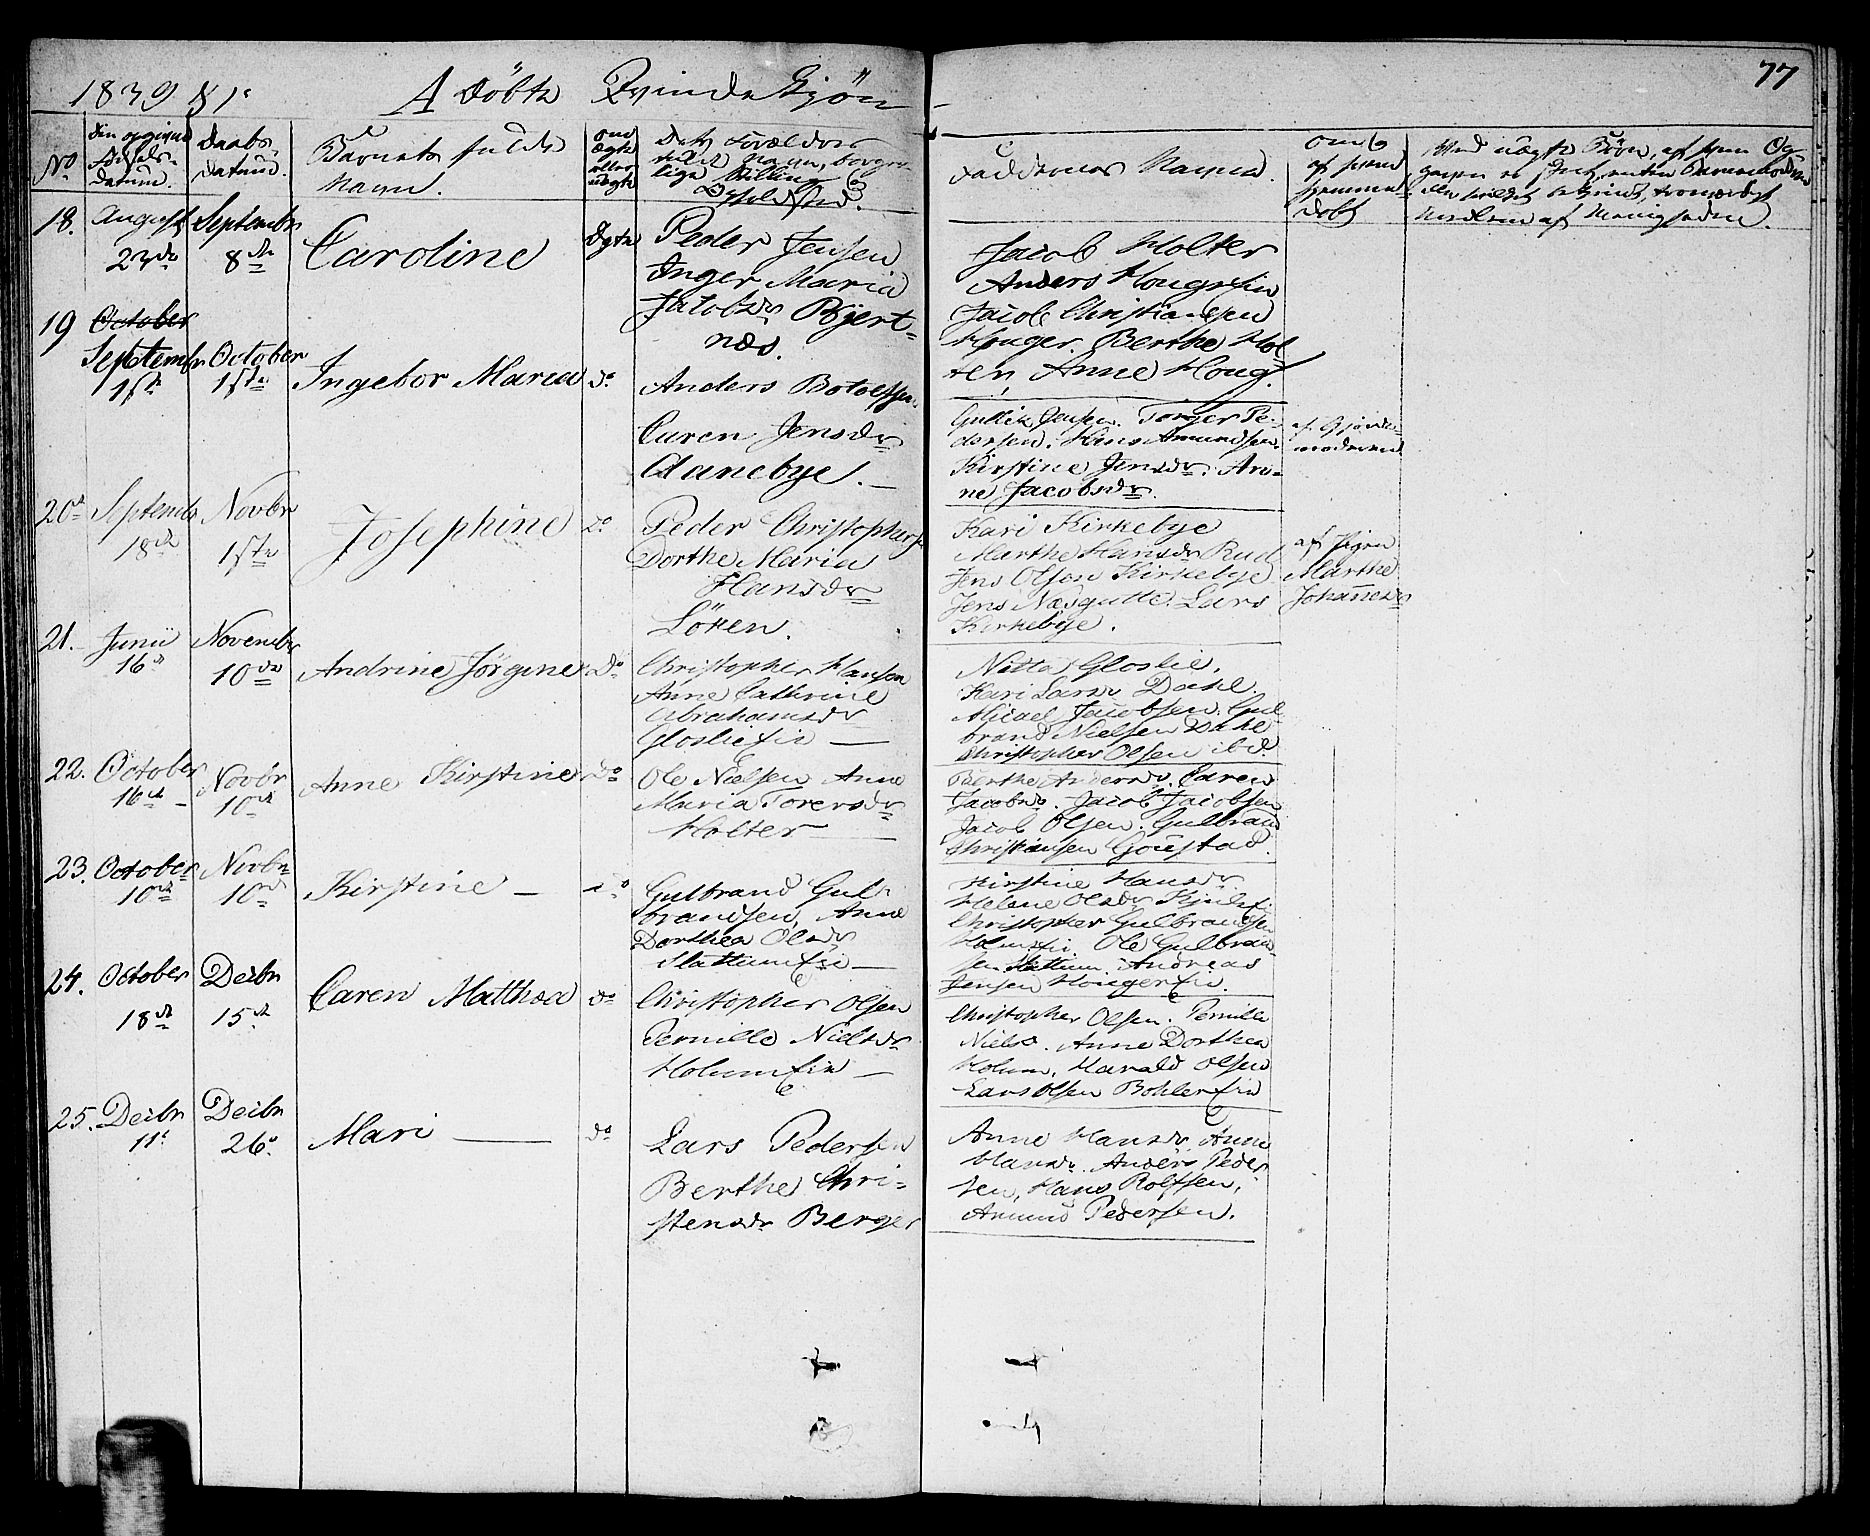 1839 § 1.
A Döbte Qvindekjön
77
No
den opgivne Födsels-datum.
Daabs-datum.
Barnets fulde Navn.
om ægte eller uægte
Dets Forældres fulde Navn, borgerlige Stilling & Opholdsted.
Faddernes Navne.
om og af hvem hjemme-döbt
18. August 23de
Septembr 8de
Caroline
ægte
Peder Jensen
Inger Maria
Jacobsdr Bjert-
næs.
Jacob Holter
Anders Hougsein
Jacob Christiansen
Houger. Berthe Hol-
ter, Anne Houg.
19 October
Septembr 1ste
October 1ste
Ingebor Maria
do
Anders Botolfsen
Caren Jensdr
Danebye. —
Gullik Jensen. Torger Pe-
dersen. Hans Amundsen.
Kirstine Jensdr. An-
ne Jacobsdr.
af Gjorde-
moderen
20de Septembr 18de
Novbr 1ste
Josephine
do
Peder Christophers
Dorthe Maria
Hansdr
Löken.
Kari Kirkebye
Marthe Hansdr Rud
Jens Olsen Kirkebye
Jens Næsgutte. Lars
Kirkebye.
af Pigen
Marthe
Johannesdr
21. Junii 16de
Novembr 10de
Andrine Jörgine
do
Christopher Hansen
Anne Cathrine
Abrahamsdr
Glosliexie —
Nitta Gloslie.
Kari Larsdr Dahl.
Micael Jacobsen. Gul-
brand Nielsen Dahl
Christopher Olsen ibd.
22. October 16de —
Novbr 10de
Anne Kirstine
do
Ole Nielsen Anne
Maria Torersdr
Holter —
Berthe Andersdr. Caren
Jacobsdr. Jacob Jacobsen
Jacob Olsen. Gulbrand
Christiansen Goustad.
23. October 10de
Novbr 10de
Kirstine —
do
Gulbrand Gul-
brandsen, Anne
Dorthea Olsdr
Slattumeie —
Kirstine Hansdr
Helene Olsdr
Christopher Gulbrandsen
Holumeie Ole Gulbran-
sen Slattum. Andreas
Jensen Hougereie.
24. October 18de
Decbr 15de
Caren Mathea
do
Christopher Olsen
Pernille Nielsdr
Holumeie —
Christopher Olsen. Pernille
Nielsd. Anne Dorthea
Holum, Harald Olsen
Lars Olsen Bohlereie
25. Decbr 11te
Decbr 26.
Mari —
do
Lars Pedersen
Berthe Chri-
stensdr Berger
Anne Hansdr Anne
Hansdr. Anders Peder-
sen, Hans Rolfsen,
Amund Pedersen.